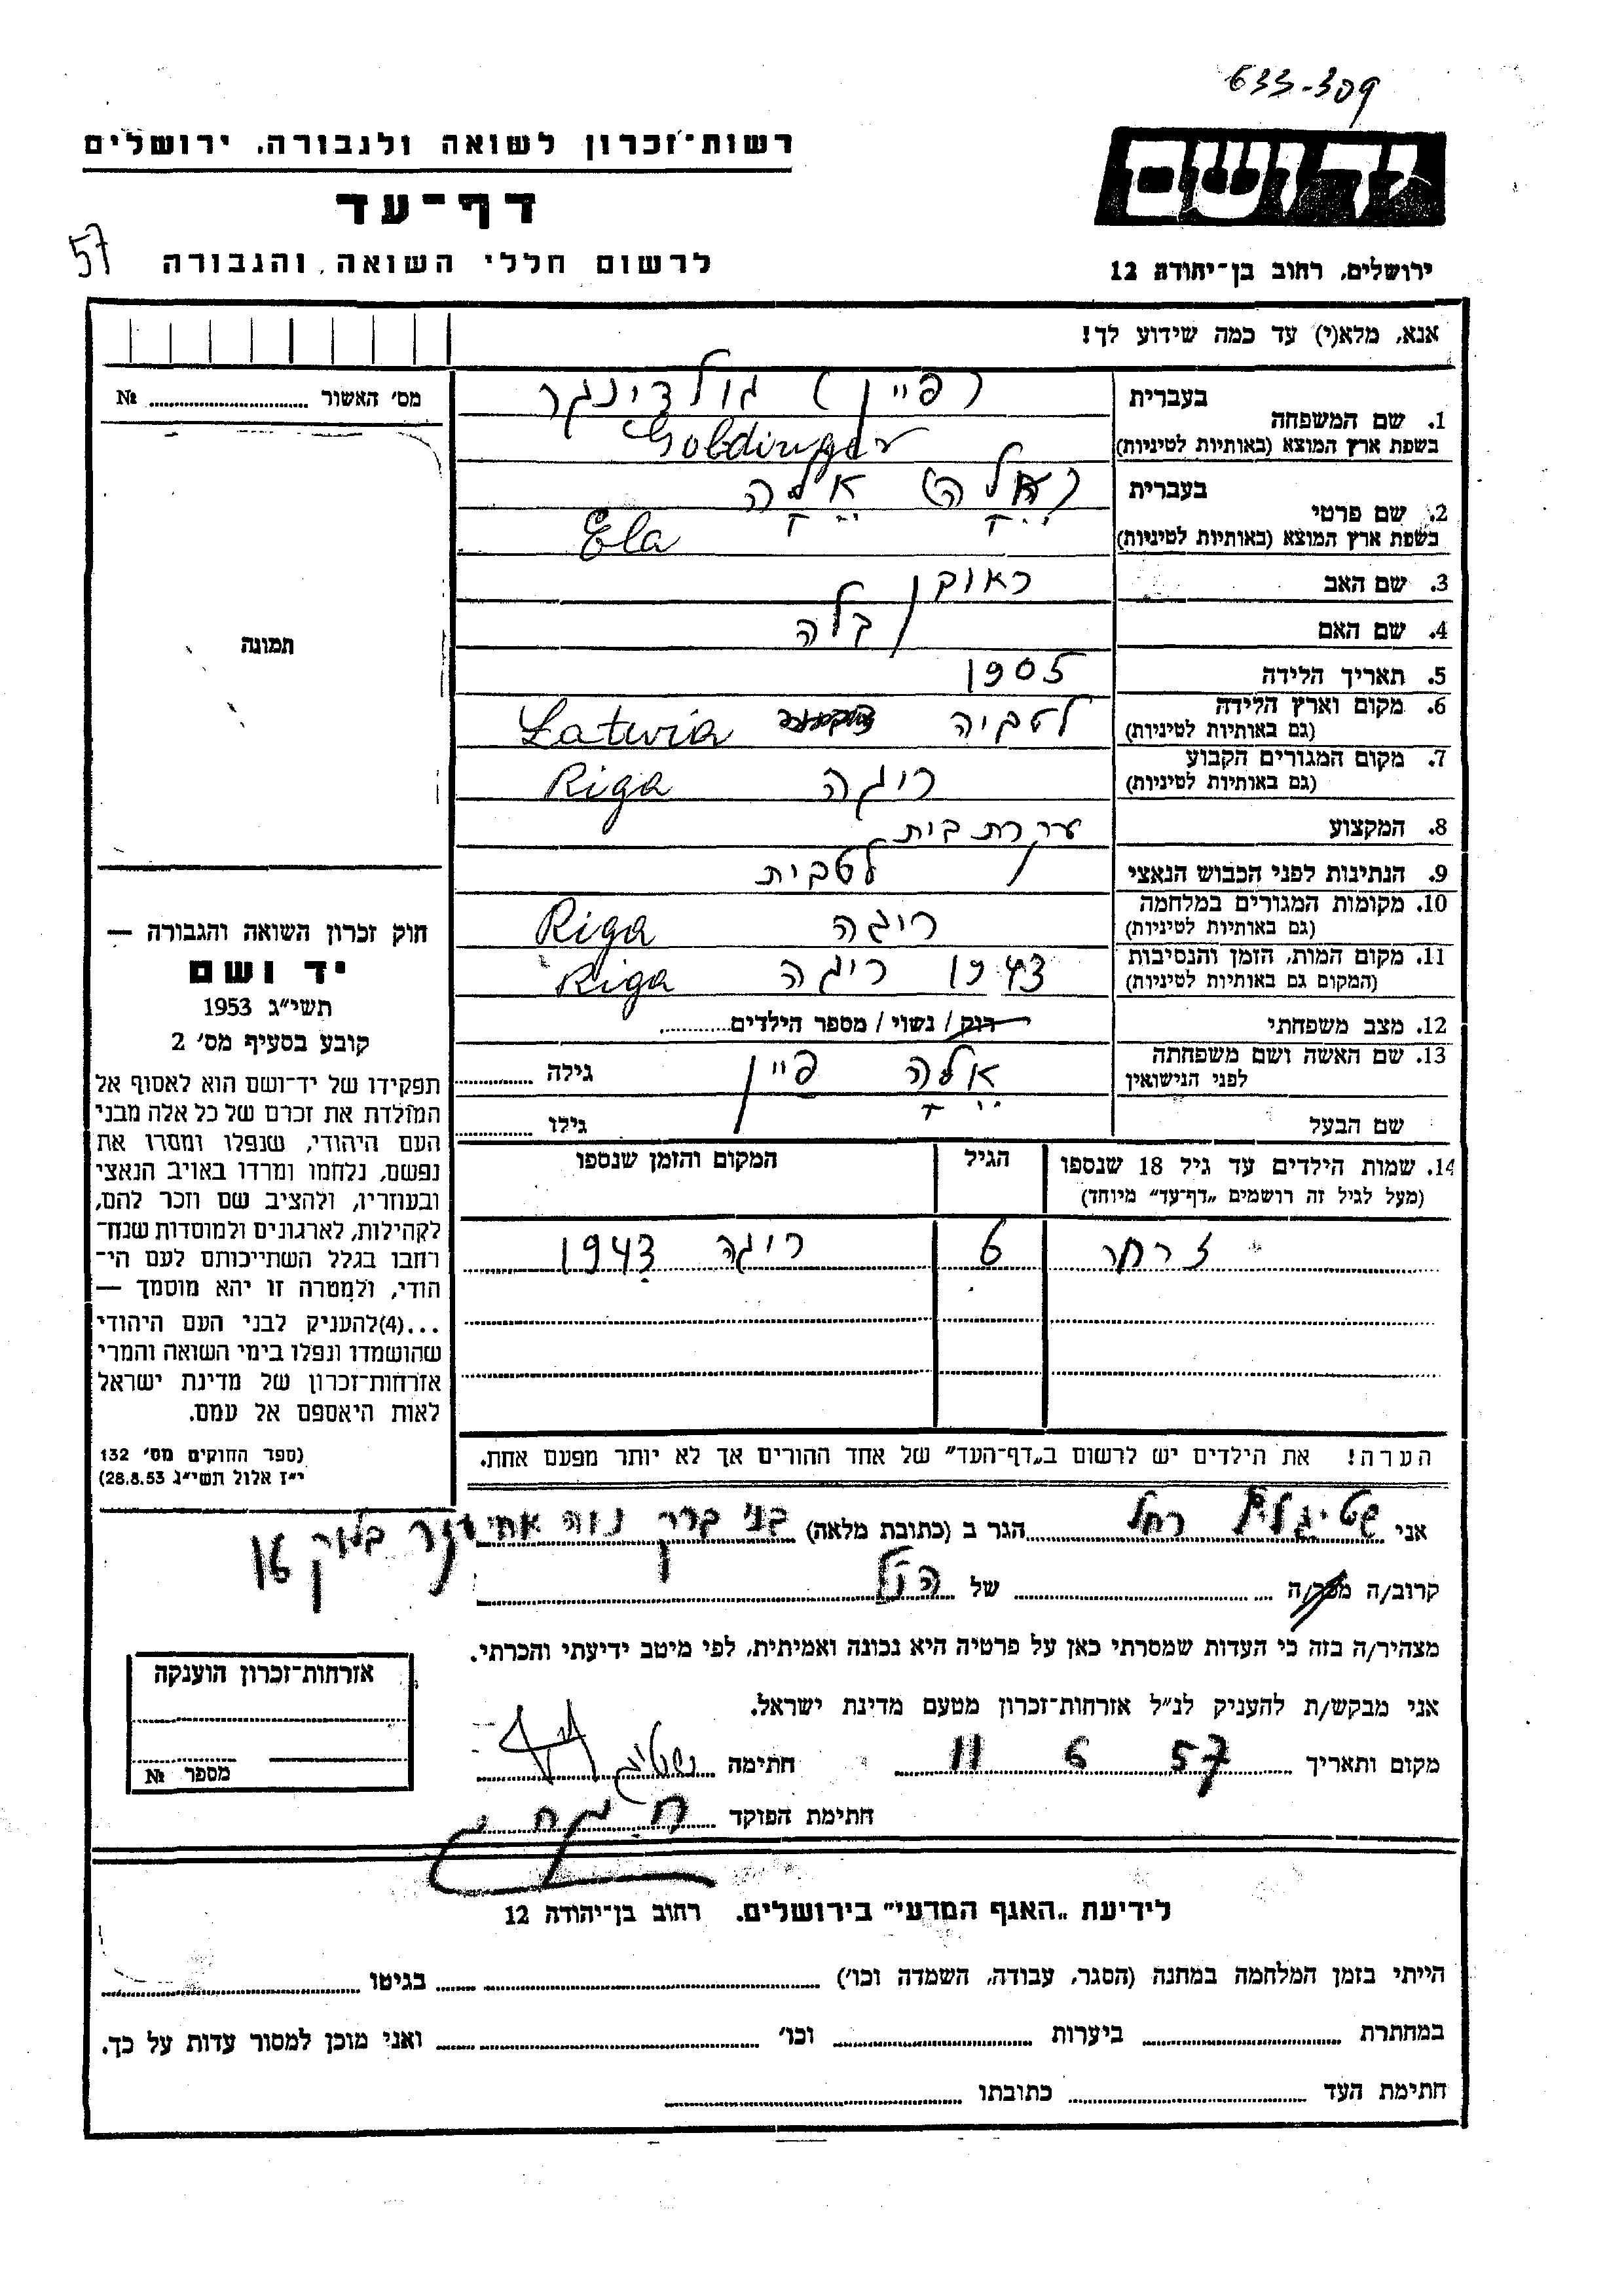 633-309
רשות־זכרון לשואה ולגבורה, ירושלים
יד ושם
דף־עד
57
לרשום חללי השואה והגבורה
ירושלים, רחוב בן־יהודה 12
אנא, מלא(י) עד כמה שידוע לך!
מס׳ האשור № 
1. שם המשפחה בעברית (פיין) גולדינגר
בשפת ארץ המוצא (באותיות לטיניות) Goldinger
2. שם פרטי בעברית (אלה) אלה
בשפת ארץ המוצא (באותיות לטיניות) Ela
3. שם האב ראובן
4. שם האם בלה
תמונה
5. תאריך הלידה 1905
6. מקום וארץ הלידה לטביה Latvia
(גם באותיות לטיניות)
7. מקום המגורים הקבוע ריגה Riga
(גם באותיות לטיניות)
8. המקצוע עקרת בית
9. הנתינות לפני הכבוש הנאצי לטבית
10. מקומות המגורים במלחמה ריגה Riga
(גם באותיות לטיניות)
11. מקום המות, הזמן והנסיבות 1943 ריגה Riga
(המקום גם באותיות לטיניות)
12. מצב משפחתי רוק / נשוי / מספר הילדים
13. שם האשה ושם משפחתה אלה פיין גילה
לפני הנישואין
שם הבעל גילו
14. שמות הילדים עד גיל 18 שנספו הגיל המקום והזמן שנספו
(מעל לגיל זה רושמים „דף־עד״ מיוחד)
6 ריגה 1943
הערה! את הילדים יש לרשום ב„דף־העד״ של אחד ההורים אך לא יותר מפעם אחת.
חוק זכרון השואה והגבורה —
יד ושם
תשי״ג 1953
קובע בסעיף מס׳ 2
תפקידו של יד־ושם הוא לאסוף אל
המולדת את זכרם של כל אלה מבני
העם היהודי, שנפלו ומסרו את
נפשם, נלחמו ומרדו באויב הנאצי
ובעוזריו, ולהציב שם וזכר להם,
לקהילות, לארגונים ולמוסדות שנח־
רחבו בגלל השתייכותם לעם הי־
הודי, ולמטרה זו יהא מוסמך —
...(4)להעניק לבני העם היהודי
שהושמדו ונפלו בימי השואה והמרי
אזרחות־זכרון של מדינת ישראל
לאות היאספם אל עמם.
(ספר החוקים מס׳ 132
י״ז אלול תשי״ג 28.8.53)
אני רחל הגר ב (כתובת מלאה) בני ברק נוה אחיעזר בלוק 16
קרוב/ה מכר/ה של הנ״ל
מצהיר/ה בזה כי העדות שמסרתי כאן על פרטיה היא נכונה ואמיתית, לפי מיטב ידיעתי והכרתי.
אני מבקש/ת להעניק לנ״ל אזרחות־זכרון מטעם מדינת ישראל.
מקום ותאריך 57 6 11 חתימה
חתימת הפוקד
אזרחות־זכרון הוענקה
מספר №
לידיעת „האגף המדעי״ בירושלים, רחוב בן־יהודה 12
הייתי בזמן המלחמה במחנה (הסגר, עבודה, השמדה וכו׳) בגיטו
במחתרת ביערות וכו׳ ואני מוכן למסור עדות על כך.
חתימת העד כתובתו